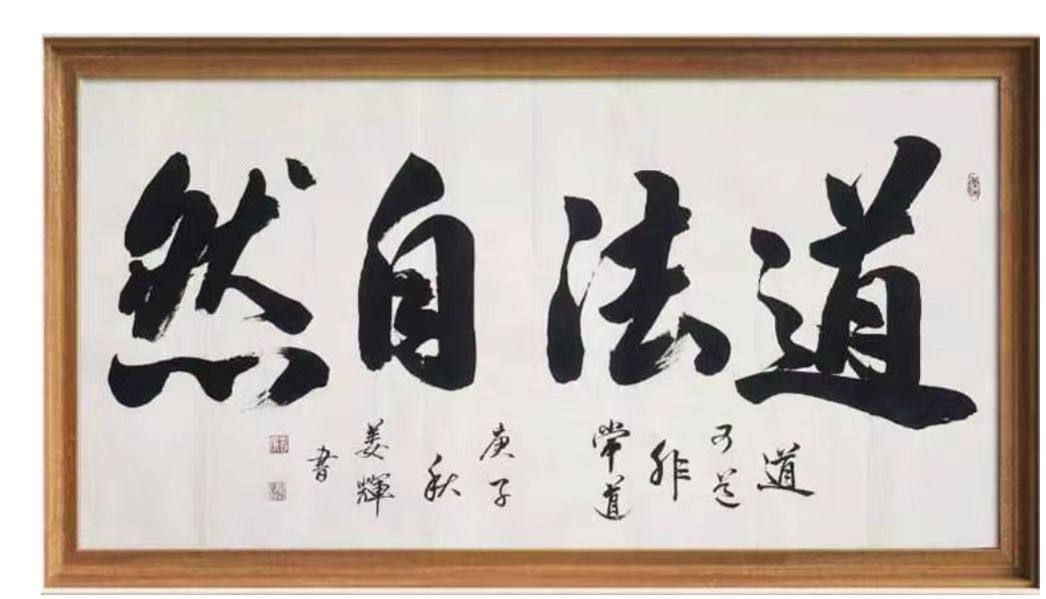 道法自然
道
可道
非
常道
庚子
秋
姜輝
書